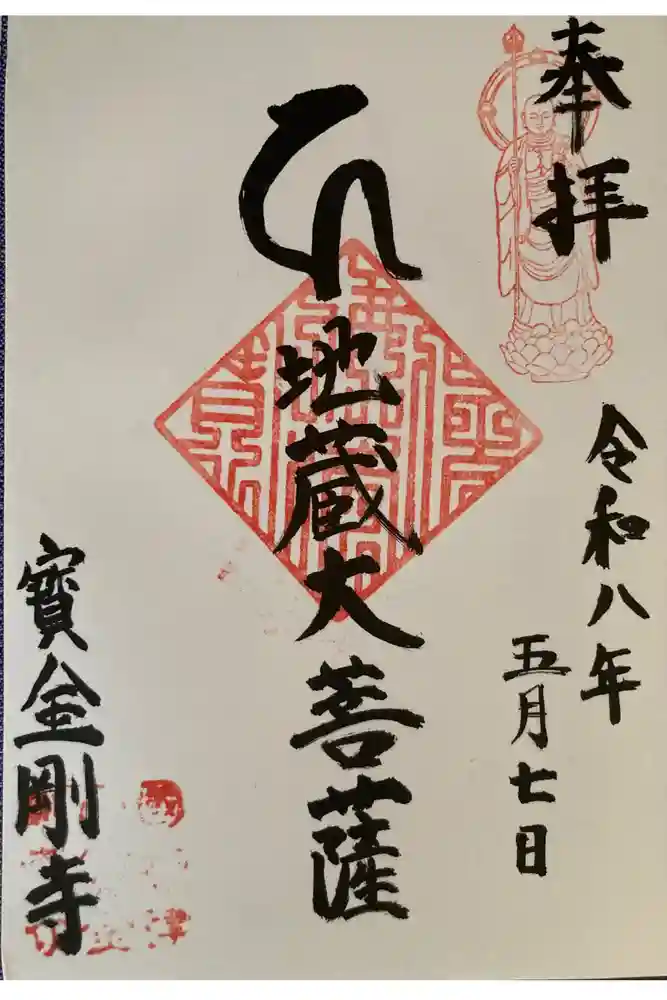 奉拝
令和八年
五月七日
地蔵大菩薩
寳金剛寺